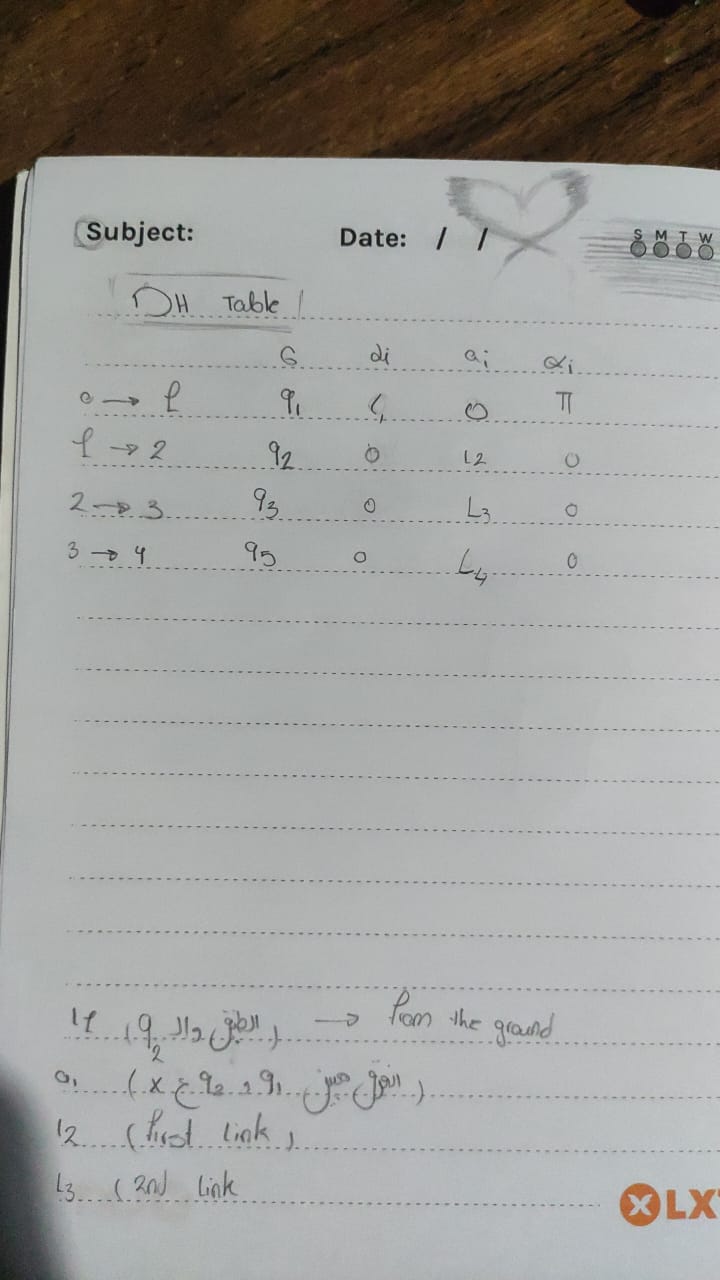 Subject: Date: / / S M T W
DH Table
G di ai αi
0 → 1 q1 L1 0 π
1 → 2 q2 0 L2 0
2 → 3 q3 0 L3 0
3 → 4 q5 0 L4 0
L1 (الطبق والـ q2) → from the ground
a1 (الفرق بين q1 و q2 ع x)
L2 (first link)
L3 (2nd link
LX